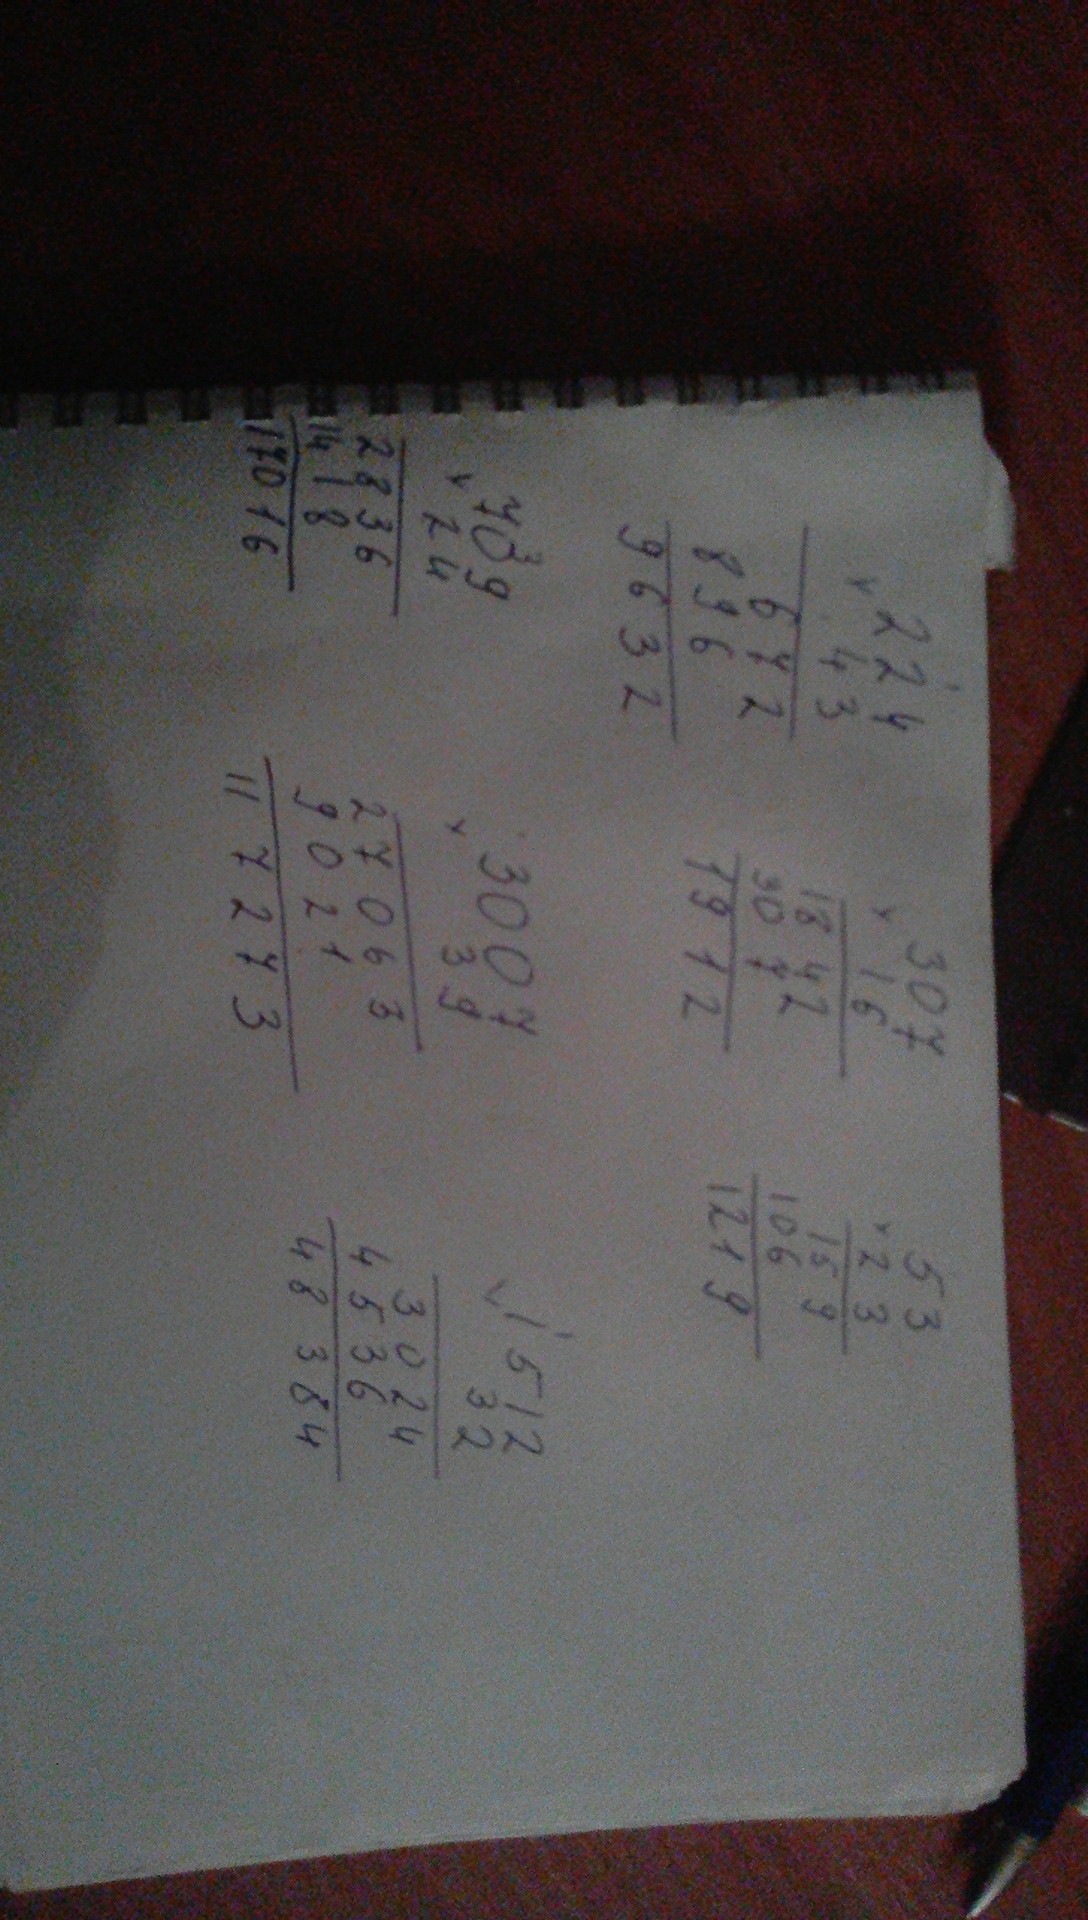 1
224
× 43
672
896
9632
307
× 16
1842
307
1912
53
× 23
159
106
1219
3
709
× 24
2836
1418
17016
3007
× 39
27063
9021
117273
1
1512
× 32
3024
4536
48384